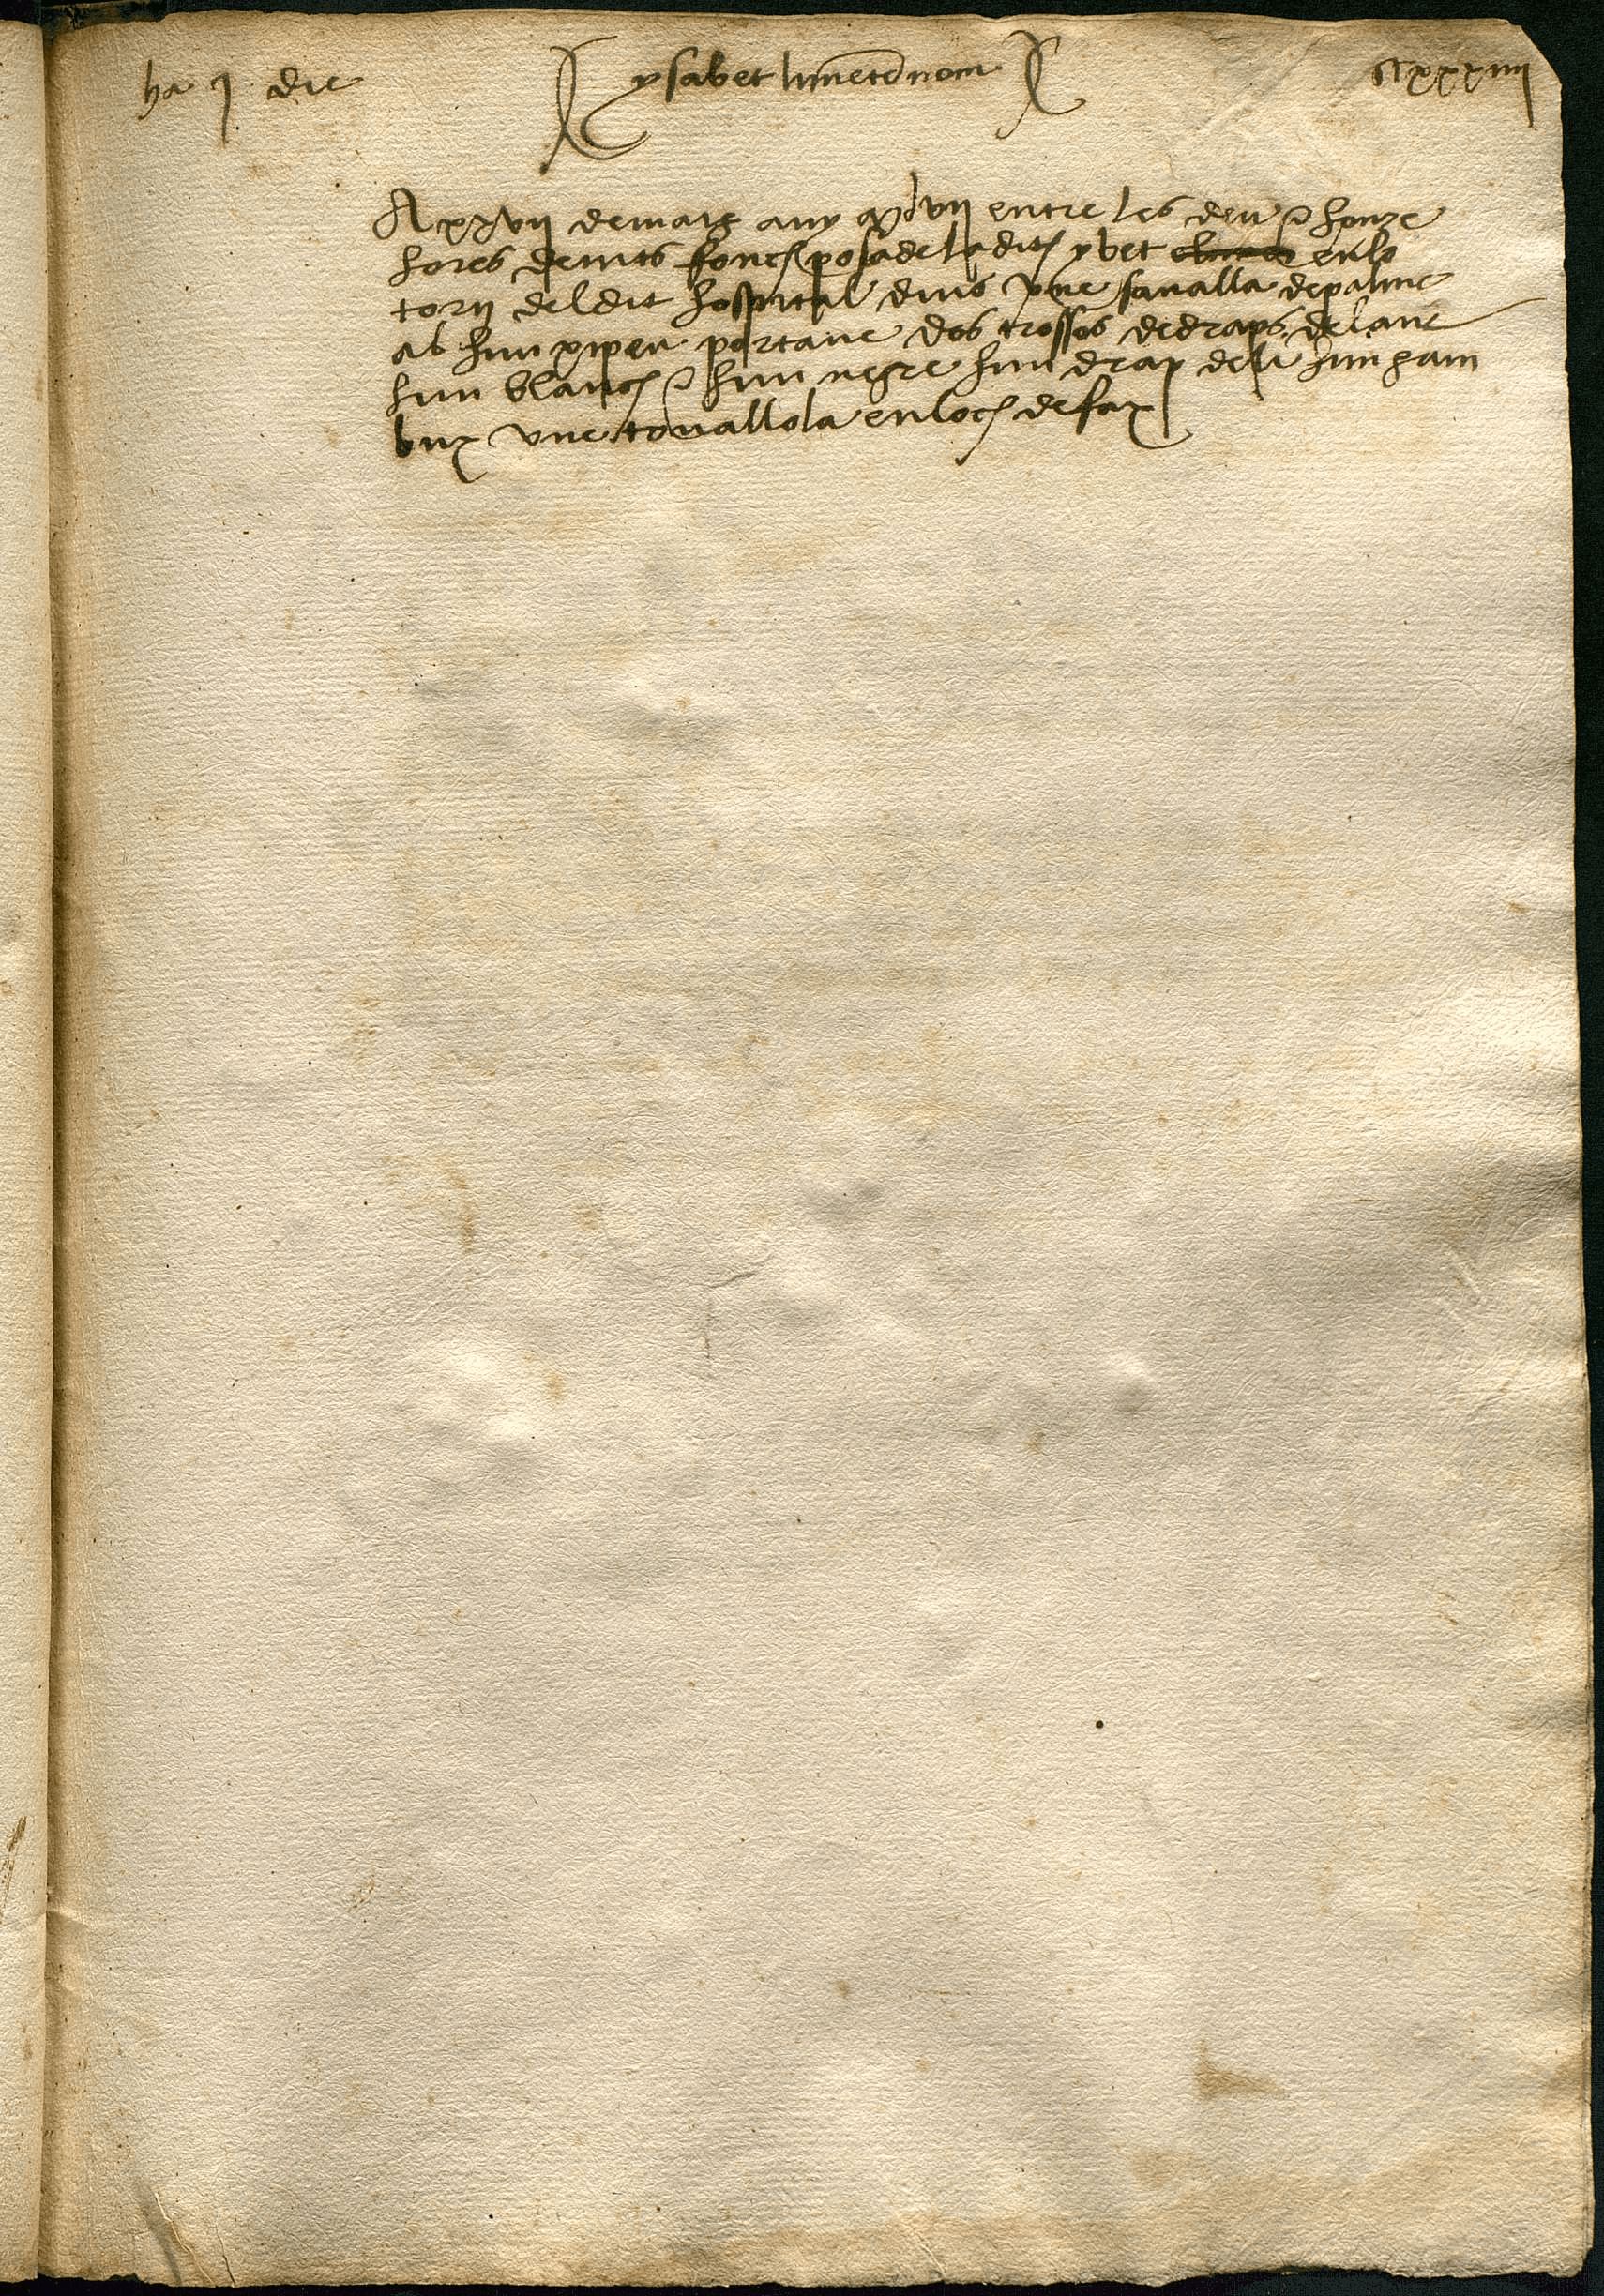 ha j die ysabet hmetẽnom Cxxxiiij
A xxvij de mars any mdvij entre les deu e honze
hores de nits fonch posade la dita ysabet en lo
torn del dit hospital dins vne senalla de palme
ab hun xipeu portaue dos trossos de draps de lane
hun blanch e hun negre hun drap de li hun gam
bux vne touallola en loch de fax